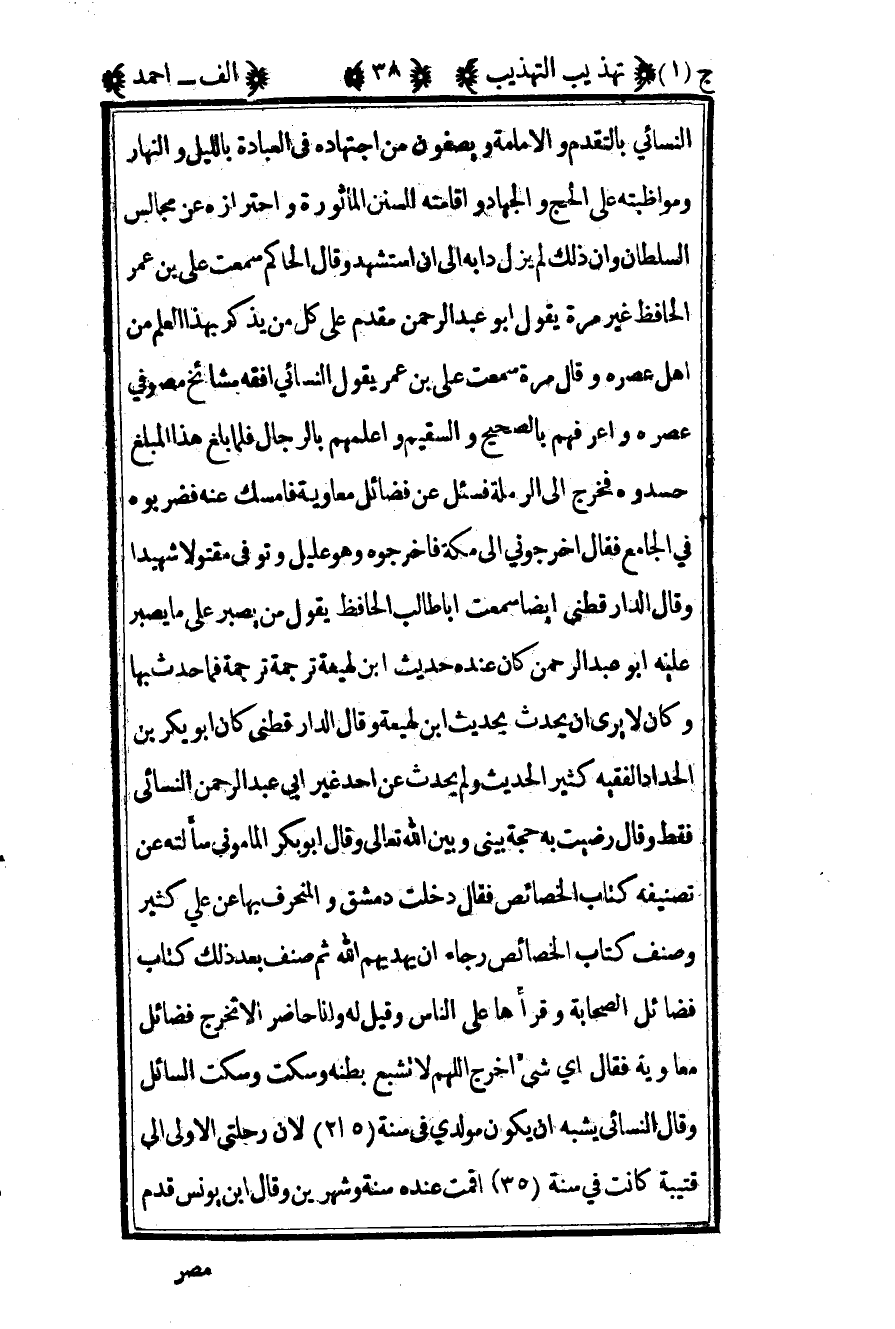 ج (١) تهذيب التهذيب ٣٨ الف ــ احمد
النسائي بالتقدم و الامامة و يصفون من اجتهاده فى العبادة بالليل و النهار
ومواظبته على الحج و الجهاد و اقامته للسنن المأثورة و احترازه عن مجالس
السلطان وان ذلك لم يزل دابه الى ان استشهد وقال الحاكم سمعت على بن عمر
الحافظ غير مرة يقول ابو عبدالرحمن مقدم على كل من يذكر بهذا العلم من
اهل عصره و قال مرة سمعت على بن عمر يقول النسائي افقه مشائخ مصر في
عصره و اعرفهم بالصحيح و السقيم و اعلمهم بالرجال فلما بلغ هذا المبلغ
حسدوه فخرج الى الرملة فسئل عن فضائل معاوية فامسك عنه فضربوه
في الجامع فقال اخرجوني الى مكة فاخرجوه وهو عليل و توفى مقتولا شهيدا
وقال الدارقطني ايضا سمعت اباطالب الحافظ يقول من يصبر على ما يصبر
عليه ابو عبدالرحمن كان عنده حديث ابن لهيعة ترجمة ترجمة فما حدث بها
وكان لا يرى ان يحدث بحديث ابن لهيعة وقال الدار قطنى كان ابو بكر بن
الحداد الفقيه كثير الحديث ولم يحدث عن احد غير ابي عبدالرحمن النسائى
فقط وقال رضيت به حجة بينى و بين الله تعالى وقال ابوبكر المامونى سألته عن
تصنيفه كتاب الخصائص فقال دخلت دمشق و المنحرف بها عن علي كثير
وصنف كتاب الخصائص رجاء ان يهديهم الله ثم صنف بعد ذلك كتاب
فضائل الصحابة و قرأها على الناس وقيل له وانا حاضر الا تخرج فضائل
معاوية فقال اي شئ اخرج اللهم لا تشبع بطنه وسكت وسكت السائل
وقال النسائى يشبه ان يكون مولدي فى سنة (٢١٥) لان رحلتي الاولى الى
قتيبة كانت في سنة (٣٥) اقمت عنده سنة وشهرين وقال ابن يونس قدم
مصر